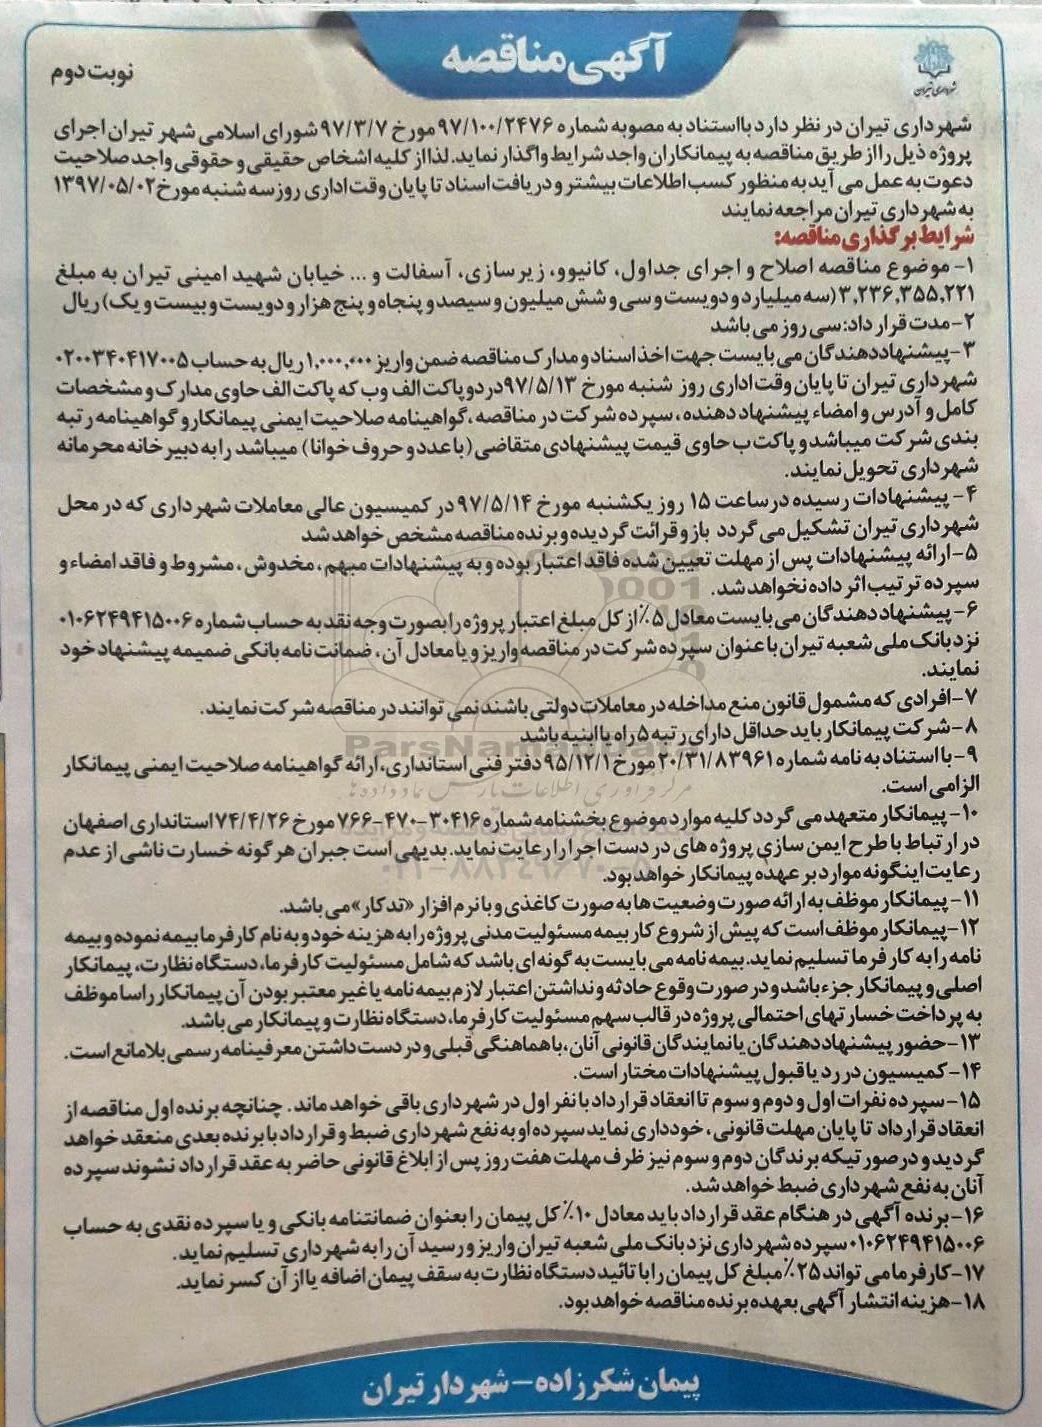 آگهی مناقصه
شهرداری تیران
نوبت دوم
شهرداری تیران در نظر دارد بااستناد به مصوبه شماره ۹۷/۱۰۰/۲۴۷۶ مورخ ۹۷/۳/۷ شورای اسلامی شهر تیران اجرای
پروژه ذیل را از طریق مناقصه به پیمانکاران واجد شرایط واگذار نماید. لذا از کلیه اشخاص حقیقی و حقوقی واجد صلاحیت
دعوت به عمل می آید به منظور کسب اطلاعات بیشتر و دریافت اسناد تا پایان وقت اداری روز سه شنبه مورخ ۱۳۹۷/۰۵/۰۲
به شهرداری تیران مراجعه نمایند
شرایط برگذاری مناقصه:
۱- موضوع مناقصه اصلاح و اجرای جداول، کانیوو، زیرسازی، آسفالت و ... خیابان شهید امینی تیران به مبلغ
۳,۲۳۶,۳۵۵,۲۲۱ (سه میلیارد و دویست و سی و شش میلیون و سیصد و پنجاه و پنج هزار و دویست و بیست و یک) ریال
۲- مدت قرارداد: سی روز می باشد
۳- پیشنهاددهندگان می بایست جهت اخذ اسناد و مدارک مناقصه ضمن واریز ۱,۰۰۰,۰۰۰ ریال به حساب ۰۲۰۰۳۴۰۴۱۷۰۰۵
شهرداری تیران تا پایان وقت اداری روز شنبه مورخ ۹۷/۵/۱۳ در دو پاکت الف و ب که پاکت الف حاوی مدارک و مشخصات
کامل و آدرس و امضاء پیشنهاد دهنده، سپرده شرکت در مناقصه، گواهینامه صلاحیت ایمنی پیمانکار و گواهینامه رتبه
بندی شرکت میباشد و پاکت ب حاوی قیمت پیشنهادی متقاضی (با عدد و حروف خوانا) میباشد را به دبیرخانه محرمانه
شهرداری تحویل نمایند.
۴- پیشنهادات رسیده در ساعت ۱۵ روز یکشنبه مورخ ۹۷/۵/۱۴ در کمیسیون عالی معاملات شهرداری که در محل
شهرداری تیران تشکیل می گردد باز و قرائت گردیده و برنده مناقصه مشخص خواهد شد
۵- ارائه پیشنهادات پس از مهلت تعیین شده فاقد اعتبار بوده و به پیشنهادات مبهم، مخدوش، مشروط و فاقد امضاء و
سپرده ترتیب اثر داده نخواهد شد.
۶- پیشنهاددهندگان می بایست معادل ۵٪ از کل مبلغ اعتبار پروژه را بصورت وجه نقد به حساب شماره ۰۱۰۶۲۴۹۴۱۵۰۰۶
نزد بانک ملی شعبه تیران با عنوان سپرده شرکت در مناقصه واریز و یا معادل آن، ضمانت نامه بانکی ضمیمه پیشنهاد خود
نمایند.
۷- افرادی که مشمول قانون منع مداخله در معاملات دولتی باشند نمی توانند در مناقصه شرکت نمایند.
۸- شرکت پیمانکار باید حداقل دارای رتبه ۵ راه یا ابنیه باشد
ParsNamadData
۹- با استناد به نامه شماره ۲۰/۳۱/۸۳۹۶۱ مورخ ۹۵/۱۲/۱ دفتر فنی استانداری، ارائه گواهینامه صلاحیت ایمنی پیمانکار
الزامی است.
۱۰- پیمانکار متعهد می گردد کلیه موارد موضوع بخشنامه شماره ۳۰۴۱۶-۴۷۰-۷۶۶ مورخ ۷۴/۴/۲۶ استانداری اصفهان
در ارتباط با طرح ایمن سازی پروژه های در دست اجرا را رعایت نماید. بدیهی است جبران هرگونه خسارت ناشی از عدم
رعایت اینگونه موارد بر عهده پیمانکار خواهد بود.
۱۱- پیمانکار موظف به ارائه صورت وضعیت ها به صورت کاغذی و با نرم افزار «تدکار» می باشد.
۱۲- پیمانکار موظف است که پیش از شروع کار بیمه مسئولیت مدنی پروژه را به هزینه خود و به نام کارفرما بیمه نموده و بیمه
نامه را به کارفرما تسلیم نماید. بیمه نامه می بایست به گونه ای باشد که شامل مسئولیت کارفرما، دستگاه نظارت، پیمانکار
اصلی و پیمانکار جزء باشد و در صورت وقوع حادثه و نداشتن اعتبار لازم بیمه نامه یا غیر معتبر بودن آن پیمانکار راسا موظف
به پرداخت خسارتهای احتمالی پروژه در قالب سهم مسئولیت کارفرما، دستگاه نظارت و پیمانکار می باشد.
۱۳- حضور پیشنهاددهندگان یا نمایندگان قانونی آنان، با هماهنگی قبلی و در دست داشتن معرفینامه رسمی بلامانع است.
۱۴- کمیسیون در رد یا قبول پیشنهادات مختار است.
۱۵- سپرده نفرات اول و دوم و سوم تا انعقاد قرارداد با نفر اول در شهرداری باقی خواهد ماند. چنانچه برنده اول مناقصه از
انعقاد قرارداد تا پایان مهلت قانونی، خودداری نماید سپرده او به نفع شهرداری ضبط و قرارداد با برنده بعدی منعقد خواهد
گردید و در صورتیکه برندگان دوم و سوم نیز ظرف مهلت هفت روز پس از ابلاغ قانونی حاضر به عقد قرارداد نشوند سپرده
آنان به نفع شهرداری ضبط خواهد شد.
۱۶- برنده آگهی در هنگام عقد قرارداد باید معادل ۱۰٪ کل پیمان را بعنوان ضمانتنامه بانکی و یا سپرده نقدی به حساب
۰۱۰۶۲۴۹۴۱۵۰۰۶ سپرده شهرداری نزد بانک ملی شعبه تیران واریز و رسید آن را به شهرداری تسلیم نماید.
۱۷- کارفرما می تواند ۲۵٪ مبلغ کل پیمان را با تائید دستگاه نظارت به سقف پیمان اضافه یا از آن کسر نماید.
۱۸- هزینه انتشار آگهی بعهده برنده مناقصه خواهد بود.
پیمان شکرزاده - شهردار تیران